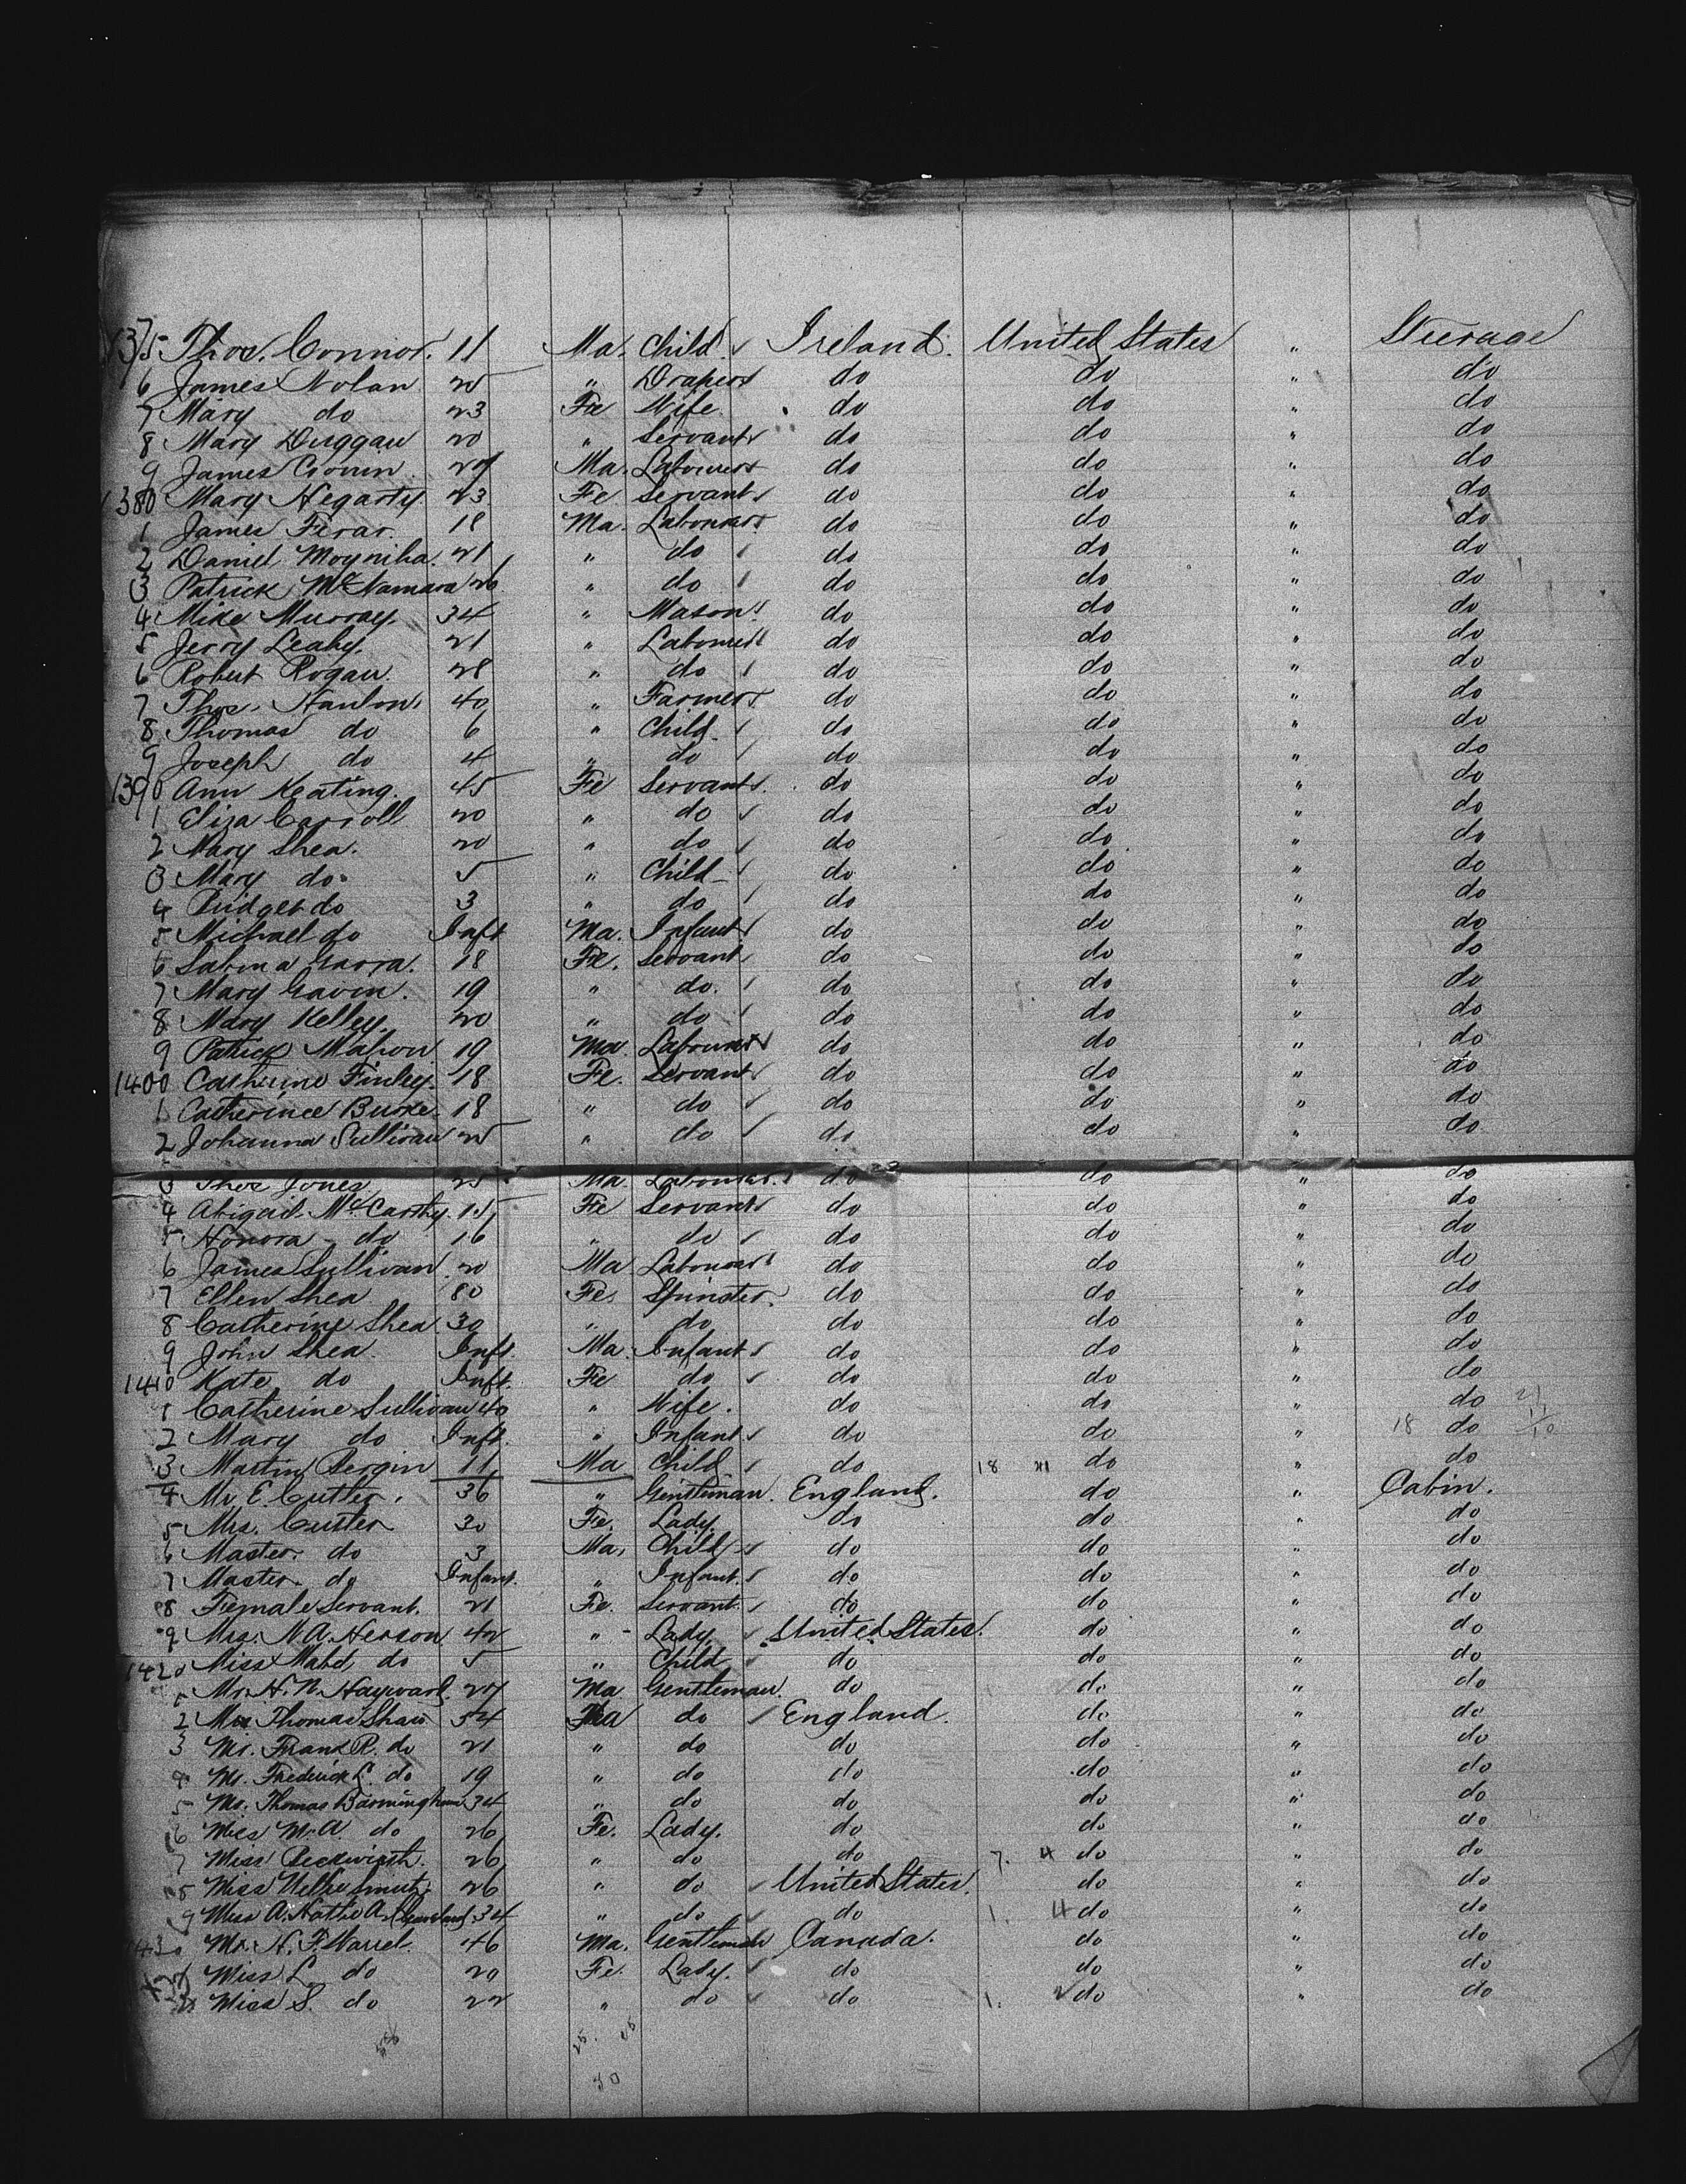 1375 Thos. Connor. 11 Ma. Child. Ireland. United States " Steerage
6 James Nolan 25 " Draper do do " do
7 Mary do 23 Fe Wife. do do " do
8 Mary Duggan 20 " Servant do do " do
9 James Cronin 24 Ma. Labourer do do " do
1380 Mary Hegarty. 23 Fe Servant do do " do
1 James Ferar. 18 Ma. Labourer do do " do
2 Daniel Moyniha. 21 " do do do " do
3 Patrick McNamara 26 " do do do " do
4 Mike Murray. 34 " Mason do do " do
5 Jerry Leahy. 21 " Labourer do do " do
6 Robert Rogan. 28 " do do do " do
7 Thos. Hanlon. 40 " Farmer do do " do
8 Thomas do 6 " Child do do " do
9 Joseph do 4 " do do do " do
1390 Ann Keating. 45 Fe Servant. do do " do
1 Eliza Carroll 20 " do do do " do
2 Mary Shea. 20 " do do do " do
3 Mary do 5 " Child do do " do
4 Bridget do 3 " do do do " do
5 Michael do Inft Ma. Infant do do " do
6 Sabina 18 Fe. Servant do do " do
7 Mary Gavin. 19 " do. do do " do
8 Mary Kelley. 20 " do do do " do
9 Patrick Mahon 19 Ma. Labourer do do " do
1400 Catherine Finley. 18 Fe. Servant do do " do
1 Catherince Burke. 18 " do do do " do
2 Johanna Sullivan 25 " do do do " do
3 Thos Jones 25 Ma. Labourer. do do " do
4 Abigail McCarthy. 15 Fe Servant do do " do
5 Honora do 16 " do do do " do
6 James Sullivan 20 Ma Labourer do do " do
7 Ellen Shea 80 Fe. Spinster. do do " do
8 Catherine Shea 30 " do do do " do
9 John Shea. Inft. Ma. Infant do do " do
1410 Kate do Inft. Fe do do do " do
1 Catherine Sullivan 40 " Wife. do do " do
2 Mary do Inft. " Infant do do " 18 do
3 Martin Bergin 11 Ma Child do 18 do " do
4 Mr E. Cutler. 36 " Gentleman. England. do " Cabin.
5 Mrs. Cutler 30 Fe. Lady. do do " do
6 Master. do 3 Ma. Child do do " do
7 Master. do Infant. " Infant. do do " do
8 Female Servant. 21 Fe. Servant. do do " do
9 Mrs. N. A. Herson 42 " Lady. United States. do " do
1420 Miss Mabel do 5 " Child do do " do
Mr. H. N. Hayward. 24 Ma Gentleman. do do " do
2 Mr Thomas Shaw 54 Ma do England. do " do
3 Mr. Frank R. do 21 " do do do " do
4 Mr. Frederick L. do 19 " do do do " do
5 Mr. Thomas Barmingham 34 " do do do " do
6 Miss M. A. do 26 Fe. Lady. do do " do
7 Miss Beckwirth. 26 " do do 7. 4 do " do
Miss Nellie 26 " do United States. do " do
9 Miss A. Hattie A. 34 " do do 1. 4 do " do
1430 Mr. H. F. 46 Ma. Gentleman Canada. do " do
Miss L. do 20 Fe. Lady. do do " do
2 Miss S. do 22 " do do 1. 2 do " do